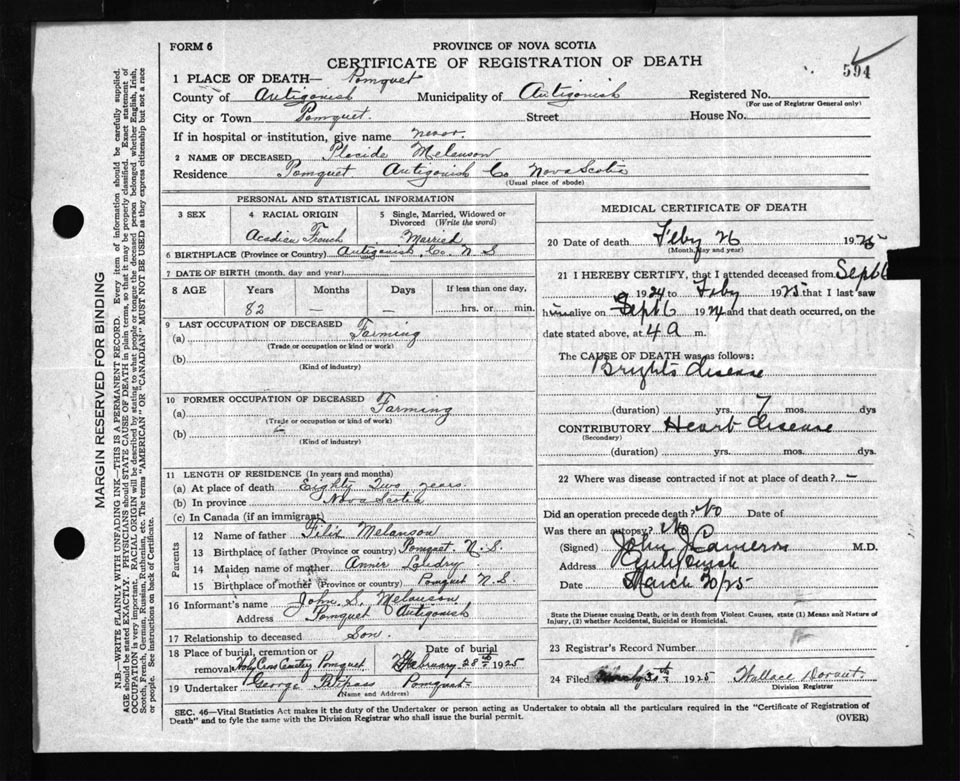 FORM 6
PROVINCE OF NOVA SCOTIA
CERTIFICATE OF REGISTRATION OF DEATH
594
1 PLACE OF DEATH— Pomquet
County of Antigonish Municipality of Antigonish Registered No.
(For use of Registrar General only)
City or Town Pomquet. Street House No.
If in hospital or institution, give name
2 NAME OF DECEASED Placide Melanson
Residence Pomquet Antigonish Co. Nova Scotia
(Usual place of abode)
MARGIN RESERVED FOR BINDING
N.B.—WRITE PLAINLY WITH UNFADING INK—THIS IS A PERMANENT RECORD. Every item of information should be carefully supplied.
AGE should be stated EXACTLY. PHYSICIANS should STATE CAUSE OF DEATH in plain terms, so that it may be properly classified. Exact statement of
OCCUPATION is very important. RACIAL ORIGIN will be described by stating to what people or tongue the deceased person belonged whether English, Irish,
Scotch, French, German, Russian, Ruthenian, etc. The terms "AMERICAN" or "CANADIAN" MUST NOT BE USED as they express citizenship but not a race
or people. See instructions on back of Certificate.
PERSONAL AND STATISTICAL INFORMATION
3 SEX
4 RACIAL ORIGIN
Acadian French
5 Single, Married, Widowed or
Divorced (Write the word)
Married
6 BIRTHPLACE (Province or Country) Antigonish, Co. N S
7 DATE OF BIRTH (month, day and year)
8 AGE Years Months Days If less than one day,
82 — — hrs. or min.
9 LAST OCCUPATION OF DECEASED
(a) Farming
(Trade or occupation or kind or work)
(b)
(Kind of industry)
10 FORMER OCCUPATION OF DECEASED
(a) Farming
(Trade or occupation or kind or work)
(b)
(Kind of industry)
11 LENGTH OF RESIDENCE (In years and months)
(a) At place of death Eighty Two years.
(b) In province Nova Scotia
(c) In Canada (if an immigrant)
Parents
12 Name of father Melanson
13 Birthplace of father (Province or Country) Pomquet. N.S.
14 Maiden name of mother Landry
15 Birthplace of mother (Province or Country) Pomquet N.S.
16 Informant's name John S. Melanson
Address Pomquet Antigonish
17 Relationship to deceased Son.
18 Place of burial, cremation or
removal Holy Cross Cemetery Pomquet
Date of burial
February 28th 1925
19 Undertaker George Pomquet
(Name and Address)
MEDICAL CERTIFICATE OF DEATH
20 Date of death Feby 26 1925
(Month, day and year)
21 I HEREBY CERTIFY, that I attended deceased from Sept 6
1924 to Feby 1925 that I last saw
him alive on Sept 6 1924 and that death occurred, on the
date stated above, at 4 a m.
The CAUSE OF DEATH was as follows:
Brights disease
(duration) yrs. 7 mos. dys
CONTRIBUTORY Heart disease
(Secondary)
(duration) yrs. mos. dys.
22 Where was disease contracted if not at place of death? —
Did an operation precede death? No Date of
Was there an autopsy? No
(Signed) John J Cameron M.D.
Address Antigonish
Date March 20/25
State the Disease causing Death, or in death from Violent Causes, state (1) Means and Nature of
Injury, (2) whether Accidental, Suicidal or Homicidal.
23 Registrar's Record Number
24 Filed 30th 1925 Wallace
Division Registrar
SEC. 46—Vital Statistics Act makes it the duty of the Undertaker or person acting as Undertaker to obtain all the particulars required in the "Certificate of Registration of
Death" and to fyle the same with the Division Registrar who shall issue the burial permit.
(OVER)